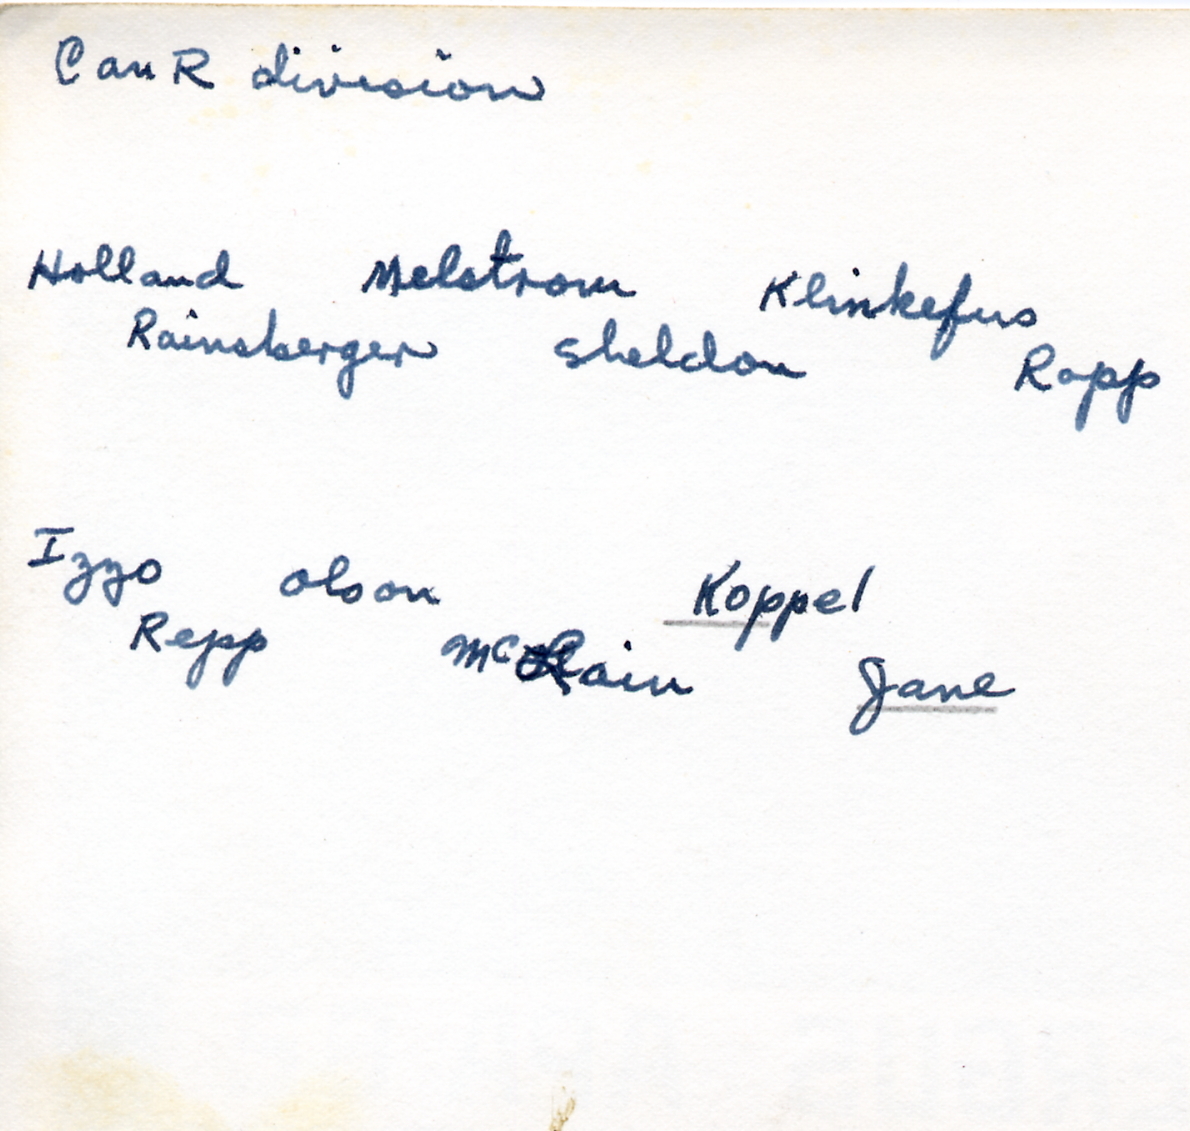 CanR division
Holland Melstrom Klinkefus
Rainsberger Sheldon Ropp
Izzo Olson Koppel
Repp McLain Jane